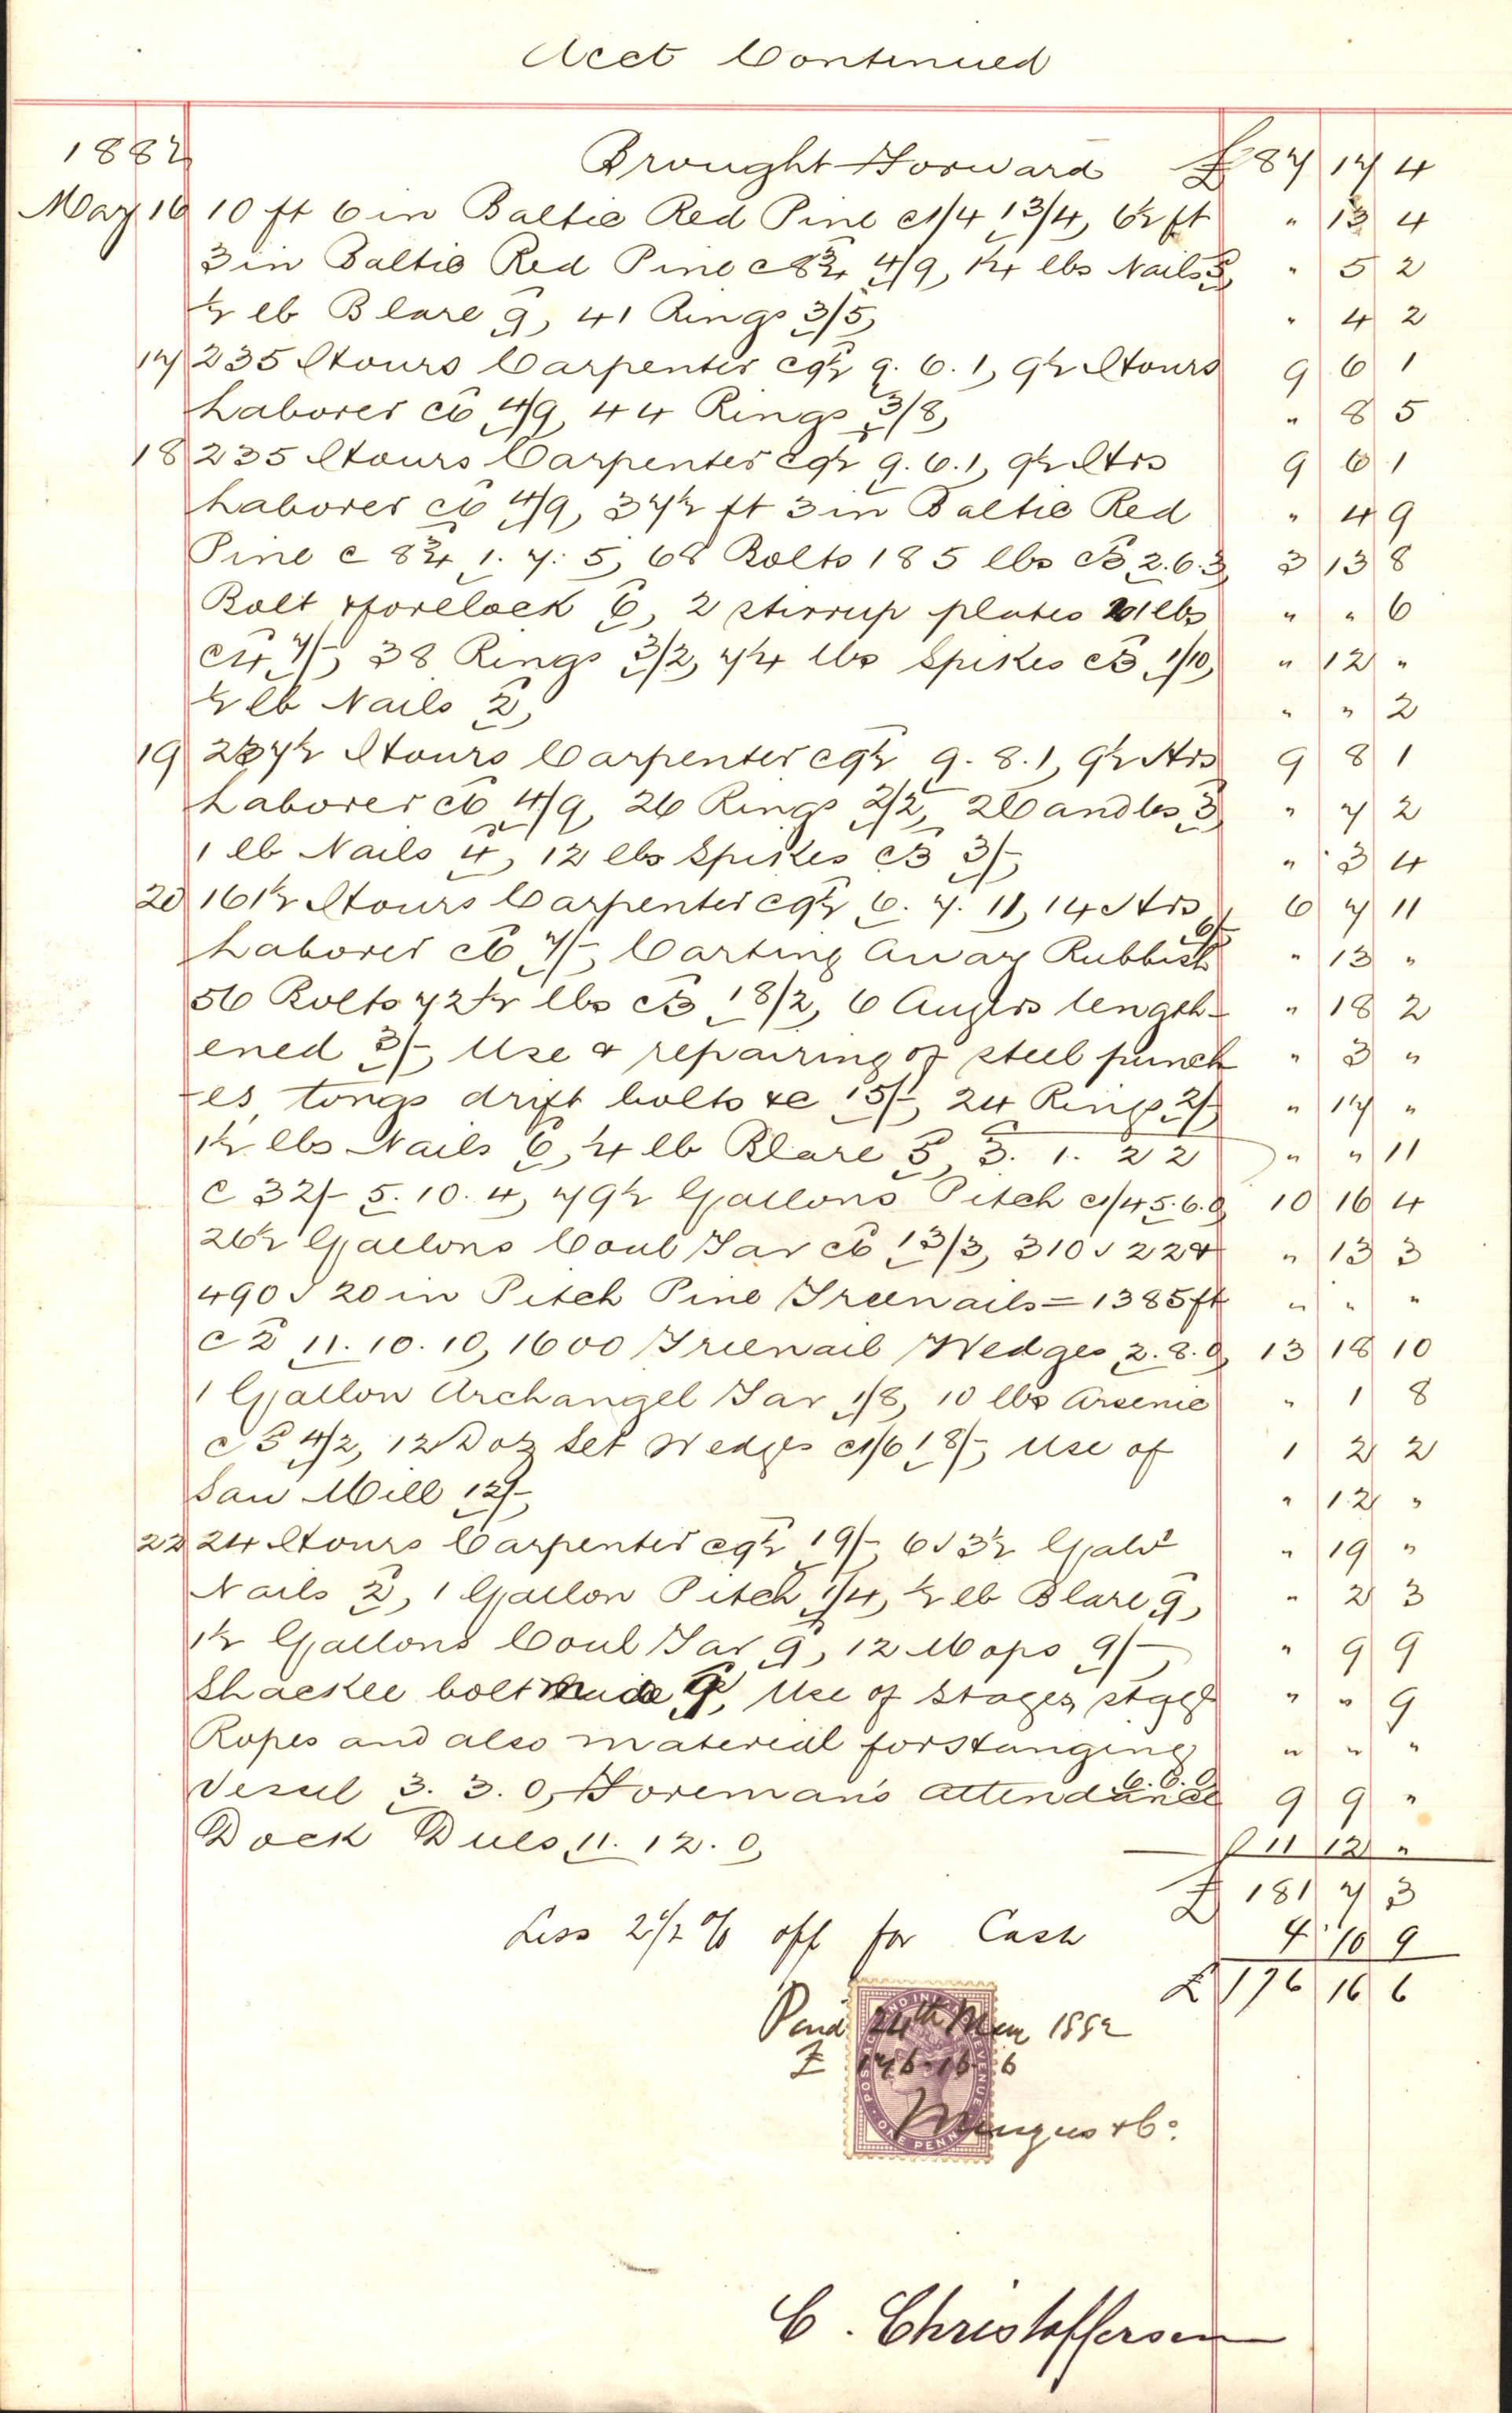 Acct Continued
1882 Brought Forward £ 87 17 4
May 16 10 ft 6 in Baltic Red Pine @ 1/4 13/4, 6½ ft " 13 4
3 in Baltic Red Pine @ 8¾ 4/9, 1¼ lbs Nails 5, " 5 2
½ lb Blare 9, 41 Rings 3/5, " 4 2
17 235 Hours Carpenter @ 9½ 9. 6. 1, 9½ Hours 9 6 1
Laborer @ 6 4/9, 44 Rings 3/8, " 8 5
18 235 Hours Carpenter @ 9½ 9. 6. 1, 9½ Hrs 9 6 1
Laborer @ 6 4/9, 37½ ft 3 in Baltic Red " 4 9
Pine @ 8¾ 1. 7. 5, 68 Bolts 185 lbs @ 3 2. 6. 3, 3 13 8
Bolt & forelock 6, 2 stirrup plates 21 lbs " " 6
@ 4 7/-, 38 Rings 3/2, 7¼ lbs Spikes @ 3 1/10, " 12 "
½ lb Nails 2, " " 2
19 237½ Hours Carpenter @ 9½ 9. 8. 1, 9½ Hrs 9 8 1
Laborer @ 6 4/9, 26 Rings 2/2, 2 Candles 3, " 7 2
1 lb Nails 4, 12 lbs Spikes @ 3 3/-, " 3 4
20 161½ Hours Carpenter @ 9½ 6. 7. 11, 14 Hrs 6 7 11
Laborer @ 6 7/-, Carting Away Rubbish 6/- " 13 "
56 Bolts 72½ lbs @ 3 18/2, 6 Augers length- " 18 2
ened 3/-, Use & repairing of steel punch " 3 "
-es, tongs drift bolts &c 15/-, 24 Rings 2/-, " 17 "
1½ lbs Nails 6, ¼ lb Blare 5, 3. 1. 22 " " 11
@ 32/- 5. 10. 4, 79½ Gallons Pitch @ 1/4 5. 6. 0, 10 16 4
26½ Gallons Coal Tar @ 6 13/3, 310 / 22 & " 13 3
490 / 20 in Pitch Pine Treenails = 1385 ft " " "
@ 2 11. 10. 10, 1600 Treenail Wedges 2. 8. 0, 13 18 10
1 Gallon Archangel Tar 1/8, 10 lbs Arsenic " 1 8
@ 5 4/2, 12 Doz Set Wedges @ 1/6 18/-, Use of 1 2 2
Saw Mill 12/-, " 12 "
22 24 Hours Carpenter @ 9½ 19/-, 6 / 3½ Galvd " 19 "
Nails 2, 1 Gallon Pitch 1/4, ½ lb Blare 9, " 2 3
1½ Gallons Coal Tar 9, 12 Mops 9/-, " 9 9
Shackle bolt made 9, Use of Stages, stage " " 9
Ropes and also material for stanging " " "
Vessel 3. 3. 0, Foreman's attendance 6. 6. 0 9 9 "
Dock Dues 11. 12. 0, 11 12 "
£ 181 7 3
Less 2½ % off for Cash 4 10 9
£ 176 16 6
Paid 24th May 1882
£ 176-16-6
POSTAGE AND INLAND REVENUE
ONE PENNY
& Co:
C. Christoffersen